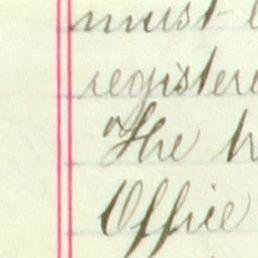 must
register
The
Office